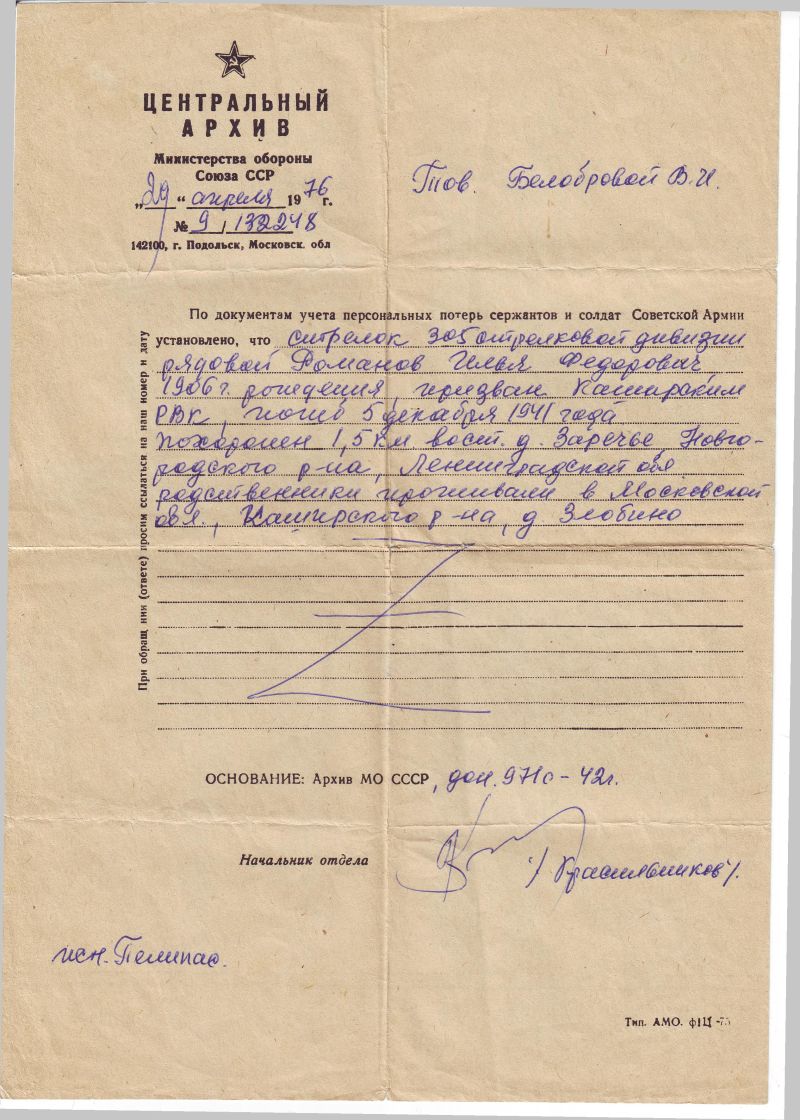 ЦЕНТРАЛЬНЫЙ
АРХИВ
Министерства обороны
Союза ССР
„29“ апреля 1976 г.
№ 9/132248
142100, г. Подольск, Московск. обл
Тов. Белобровой В.И.
По документам учета персональных потерь сержантов и солдат Советской Армии
установлено, что стрелок 305 стрелковой дивизии
рядовой Романов Илья Федорович,
1906 г. рождения, призван Каширским
РВК, погиб 5 декабря 1941 года
похоронен 1,5 км вост. д. Заречье, Новго-
родского р-на, Ленинградской обл.
родственники проживали в Московской
обл., Каширского р-на, д Злобино
При обращ нии (ответе) просим ссылаться на наш номер и дату
ОСНОВАНИЕ: Архив МО СССР, дон. 971с-42г.
Начальник отдела
/Красильников/.
исп. Пелипас.
Тип. АМО. ф1Ц -75